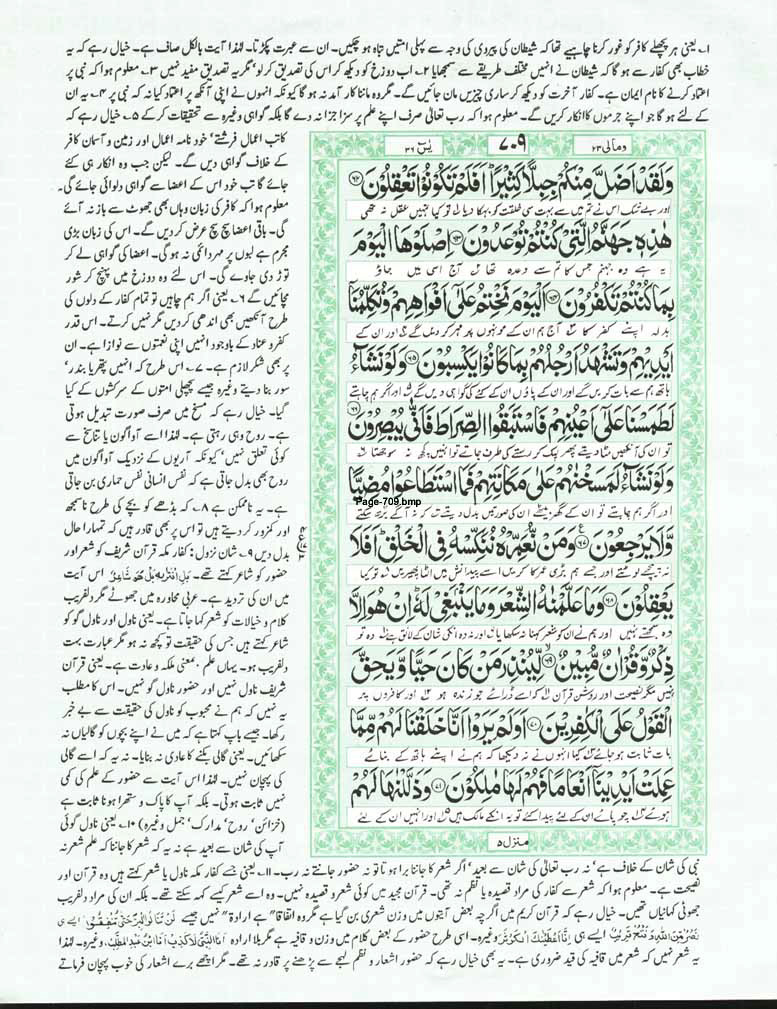 ۱۔ یعنی ہر پچھلے کافر کو غور کرنا چاہیے تھا کہ شیطان کی پیروی کی وجہ سے پہلی امتیں تباہ ہو چکیں۔ ان سے عبرت پکڑتا۔ لہٰذا آیت بالکل صاف ہے۔ خیال رہے کہ یہ
خطاب بھی کفار سے ہو گا کہ شیطان نے انہیں مختلف طریقے سے سمجھایا ۲۔ اب دوزخ کو دیکھ کر اس کی تصدیق کر لو مگر یہ تصدیق مفید نہیں ۳۔ معلوم ہوا کہ نبی پر
اعتماد کرنے کا نام ایمان ہے۔ کفار آخرت کو دیکھ کر ساری چیزیں مان جائیں گے۔ مگر وہ ماننا کار آمد نہ ہو گا کیونکہ انہوں نے اپنی آنکھ پر اعتماد کیا نہ کہ نبی پر ۴۔ یہ ان
کے لئے ہو گا جو اپنے جرموں کا انکار کریں گے۔ معلوم ہوا کہ رب تعالیٰ صرف اپنے علم پر سزا جزا نہ دے گا بلکہ گواہی وغیرہ سے تحقیقات کر کے ۵۔ خیال رہے کہ
کاتب اعمال فرشتے' خود نامہ اعمال اور زمین و آسمان کافر
کے خلاف گواہی دیں گے۔ لیکن جب وہ انکار ہی کئے
جائے گا تب خود اس کے اعضا سے گواہی دلوائی جائے گی۔
معلوم ہوا کہ کافر کی زبان وہاں بھی جھوٹ سے باز نہ آئے
گی۔ باقی اعضا سچ سچ عرض کر دیں گے۔ اس کی زبان بڑی
مجرم ہے لبوں پر مہر دائمی نہ ہو گی۔ اعضا کی گواہی لے کر
توڑ دی جاوے گی۔ اس لئے وہ دوزخ میں پہنچ کر شور
مچائیں گے ۶۔ یعنی اگر ہم چاہیں تو تمام کفار کے دلوں کی
طرح آنکھیں بھی اندھی کر دیں مگر نہیں کرتے۔ اس قدر
کفر و عناد کے باوجود انہیں اپنی نعمتوں سے نوازا ہے۔ ان
پر بھی شکر لازم ہے۔ ۷۔ اس طرح کہ انہیں پتھر یا بندر'
سور بنا دیتے وغیرہ جیسے پچھلی امتوں کے سرکشوں کے کیا
گیا۔ خیال رہے کہ مسخ میں صرف صورت تبدیل ہوتی
ہے۔ روح وہی رہتی ہے۔ لہٰذا اسے آواگون یا تناسخ سے
کوئی تعلق نہیں' کیونکہ آریوں کے نزدیک آواگون میں
روح بھی بدل جاتی ہے کہ نفس انسانی نفس حماری بن جاتی
ہے۔ یہ ناممکن ہے ۸۔ کہ بڈھے کو بچے کی طرح ناسمجھ
اور کمزور کر دیتے ہیں تو اس پر بھی قادر ہیں کہ تمہارا حال
بدل دیں ۹۔ شان نزول: کفار مکہ قرآن شریف کو شعر اور
حضور کو شاعر کہتے تھے۔ بَلِ افْتَرٰىهُ بَلْ هُوَ شَاعِرٌ اس آیت
میں ان کی تردید ہے۔ عربی محاورہ میں جھوٹے مگر دلفریب
کلام و خیالات کو شعر کہا جاتا ہے۔ یعنی ناول اور ناول گو کو
شاعر کہتے ہیں جس کی حقیقت تو کچھ نہ ہو مگر عبارت بہت
دلفریب ہو۔ یہاں علم۔ بمعنی ملکہ و عادت ہے۔ یعنی قرآن
شریف ناول نہیں اور حضور ناول گو نہیں۔ اس کا مطلب
یہ نہیں کہ ہم نے محبوب کو ناول کی حقیقت سے بے خبر
رکھا۔ جیسے باپ کہتا ہے کہ میں نے اپنے بچوں کو گالیاں نہ
سکھائیں۔ یعنی گالی بکنے کا عادی نہ بنایا۔ نہ یہ کہ اسے گالی
کی پہچان نہیں۔ لہٰذا اس آیت سے حضور کے علم کی کمی
نہیں ثابت ہوتی۔ بلکہ آپ کا پاک و ستھرا ہونا ثابت ہے
(خزائن' روح' مدارک' جمل وغیرہ) ۱۰۔ یعنی ناول گوئی
آپ کی شان سے بعید ہے نہ یہ کہ شعر کا جاننا کہ علم شعر نہ
یٰسٓ ۳۶
۷۰۹
ومالی ۲۳
وَلَقَدْ اَضَلَّ مِنْكُمْ جِبِلًّا كَثِيْرًا ؕ اَفَلَمْ تَكُوْنُوْا تَعْقِلُوْنَ ۝۶۲
اور بے شک اس نے تم میں سے بہت سی خلقت کو بہکا دیا تو کیا تمہیں عقل نہ تھی
هٰذِهٖ جَهَنَّمُ الَّتِيْ كُنْتُمْ تُوْعَدُوْنَ ۝۶۳ اِصْلَوْهَا الْيَوْمَ
یہ ہے وہ جہنم جس کا تم سے وعدہ تھا آج اسی میں جاؤ
بِمَا كُنْتُمْ تَكْفُرُوْنَ ۝۶۴ اَلْيَوْمَ نَخْتِمُ عَلٰۤى اَفْوَاهِهِمْ وَتُكَلِّمُنَاۤ
بدلہ اپنے کفر کا آج ہم ان کے مونہوں پر مہر کر دیں گے اور ان کے
اَيْدِيْهِمْ وَتَشْهَدُ اَرْجُلُهُمْ بِمَا كَانُوْا يَكْسِبُوْنَ ۝۶۵ وَلَوْ نَشَآءُ
ہاتھ ہم سے بات کریں گے اور ان کے پاؤں ان کے کئے کی گواہی دیں گے اور اگر ہم چاہتے
لَطَمَسْنَا عَلٰۤى اَعْيُنِهِمْ فَاسْتَبَقُوا الصِّرَاطَ فَاَنّٰى يُبْصِرُوْنَ ۝۶۶
تو ان کی آنکھیں مٹا دیتے پھر لپک کر رستے کی طرف جاتے تو انہیں کچھ نہ سوجھتا
وَلَوْ نَشَآءُ لَمَسَخْنٰهُمْ عَلٰى مَكَانَتِهِمْ فَمَا اسْتَطَاعُوْا مُضِيًّا
Page-709.bmp
اور اگر ہم چاہتے تو ان کے گھر بیٹھے ان کی صورتیں بدل دیتے کہ نہ آگے بڑھ سکتے
وَّلَا يَرْجِعُوْنَ ۝۶۷ وَمَنْ نُّعَمِّرْهُ نُنَكِّسْهُ فِي الْخَلْقِ ؕ اَفَلَا
نہ پیچھے لوٹتے اور جسے ہم بڑی عمر کا کریں اسے پیدائش میں الٹا پھیریں تو کیا
يَعْقِلُوْنَ ۝۶۸ وَمَا عَلَّمْنٰهُ الشِّعْرَ وَمَا يَنْۢبَغِيْ لَهٗ ؕ اِنْ هُوَ اِلَّا
وہ سمجھتے نہیں اور ہم نے ان کو شعر کہنا نہ سکھایا اور نہ وہ انکی شان کے لائق ہے وہ تو
ذِكْرٌ وَّقُرْاٰنٌ مُّبِيْنٌ ۝۶۹ لِّيُنْذِرَ مَنْ كَانَ حَيًّا وَّيَحِقَّ
نہیں مگر نصیحت اور روشن قرآن کہ اسے ڈرائے جو زندہ ہو اور کافروں پر
الْقَوْلُ عَلَى الْكٰفِرِيْنَ ۝۷۰ اَوَلَمْ يَرَوْا اَنَّا خَلَقْنَا لَهُمْ مِّمَّا
بات ثابت ہو جائے کیا انہوں نے نہ دیکھا کہ ہم نے اپنے ہاتھ کے بنائے
عَمِلَتْ اَيْدِيْنَاۤ اَنْعَامًا فَهُمْ لَهَا مٰلِكُوْنَ ۝۷۱ وَذَلَّلْنٰهَا لَهُمْ
ہوئے چوپائے ان کے لئے پیدا کئے تو یہ انکے مالک ہیں اور انہیں ان کے لئے
منزل ۵
نبی کی شان کے خلاف ہے' نہ رب تعالیٰ کی شان سے بعید' اگر شعر کا جاننا برا ہوتا تو نہ حضور جانتے نہ رب۔ ۱۱۔ یعنی جسے کفار مکہ ناول یا شعر کہتے ہیں وہ قرآن اور
نصیحت ہے۔ معلوم ہوا کہ شعر سے کفار کی مراد قصیدہ یا نظم نہ تھی۔ قرآن مجید میں کوئی شعر و قصیدہ نہیں۔ وہ اسے شعر کیسے کہہ سکتے تھے۔ بلکہ ان کی مراد دلفریب
جھوٹی کہانیاں تھیں۔ خیال رہے کہ قرآن کریم میں اگرچہ بعض آیتوں میں وزن شعری بن گیا ہے مگر وہ اتفاقا" ہے ارادۃ" نہیں جیسے لَنْ تَنَالُوا الْبِرَّ حَتّٰى تُنْفِقُوْا ایسے ہی
نَصْرٌ مِّنَ اللّٰهِ وَفَتْحٌ قَرِيْبٌ ایسے ہی اِنَّا اَعْطَيْنٰكَ الْكَوْثَرَ وغیرہ۔ اسی طرح حضور کے بعض کلام میں وزن و قافیہ ہے مگر بلا ارادہ اَنَا النَّبِيُّ لَا كَذِبْ اَنَا ابْنُ عَبْدِ الْمُطَّلِبْ وغیرہ۔ لہٰذا
یہ شعر نہیں کہ شعر میں قافیہ کی قید ضروری ہے۔ یہ بھی خیال رہے کہ حضور اشعار و نظم لہجے سے پڑھنے پر قادر نہ تھے۔ مگر اچھے برے اشعار کی خوب پہچان فرماتے